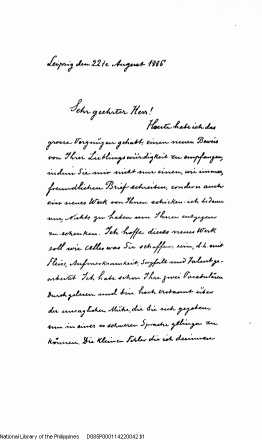 Leipzig den 22te August 1886
Sehr geehrter Herr!
Heute habe ich das
grosse Vergnügen gehabt, einen neuen Beweis
von Ihrer Liebenswürdigkeit zu empfangen,
indem Sie mir nicht nur einen, wie immer,
freundlichen Brief schreiben, sondern auch
eine neues Werk von Ihnen schicken. ich bedaure
nur, Nichts zu haben um Ihnen entgegen
zu schenken. Ich hoffe dieses neues Werk
soll wie alles was Sie schaffen, sein, d.h. mit
Fleiss, Aufmerksamkeit, Sorgfalt und Talent ge-
arbeitet. Ich habe schon Ihre zwei
durchgelesen und bin hoch erstaunt über
der unsaglichen Mühe, die Sie sich gegeben
um in einer so schweren Sprache gelingen zu
können. Die kleinen Fehler die ich darinnen
National Library of the Philippines D086P00011422004211